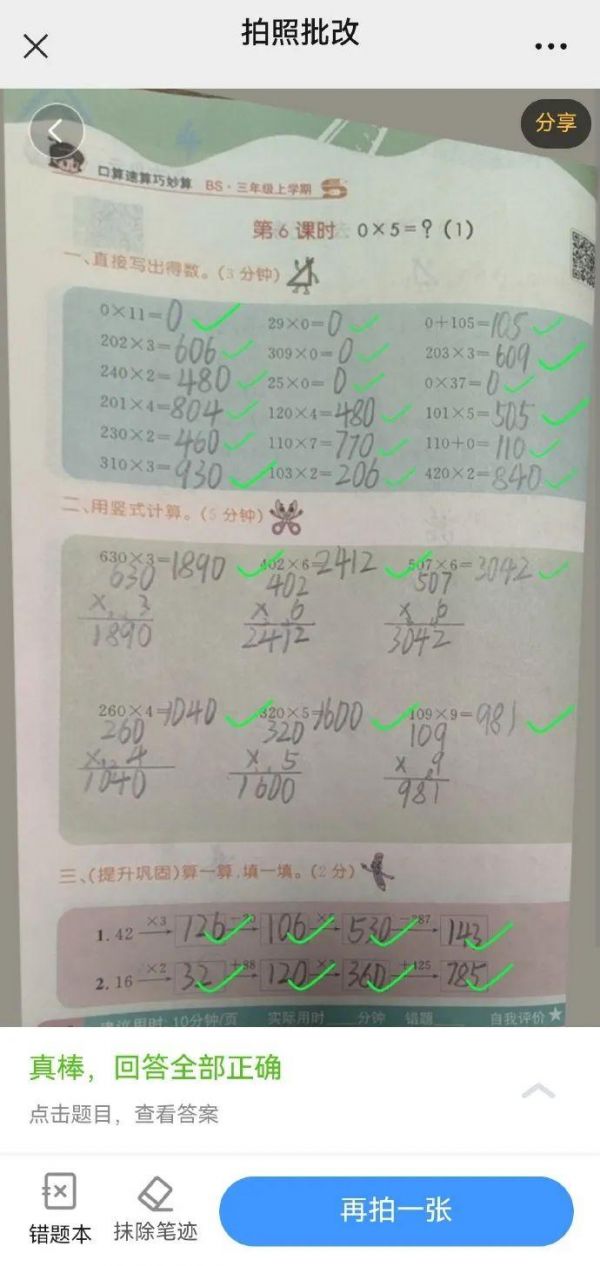 拍照批改
分享
口算速算巧妙算 BS·三年级上学期
第6课时 0×5=?(1)
一、直接写出得数。(3分钟)
0×11=0 29×0=0 0+105=105
202×3=606 309×0=0 203×3=609
240×2=480 25×0=0 0×37=0
201×4=804 120×4=480 101×5=505
230×2=460 110×7=770 110+0=110
310×3=930 103×2=206 420×2=840
二、用竖式计算。(5分钟)
630×3=1890 402×6=2412 507×6=3042
630 402 507
× 3 × 6 × 6
1890 2412 3042
260×4=1040 320×5=1600 109×9=981
260 320 109
× 4 × 5 × 9
1040 1600 981
三、(提升巩固)算一算,填一填。(2分)
×3
1. 42 126 106 530 143
×2
2. 16 32 120 360 785
建议用时:10分钟/页 实际用时 分钟 错题 自我评价
真棒，回答全部正确
点击题目，查看答案
错题本 抹除笔迹 再拍一张